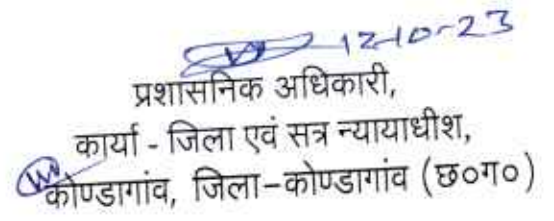 12-10-23
प्रशासनिक अधिकारी,
कार्या - जिला एवं सत्र न्यायाधीश,
कोण्डागांव, जिला-कोण्डागांव (छ०ग०)